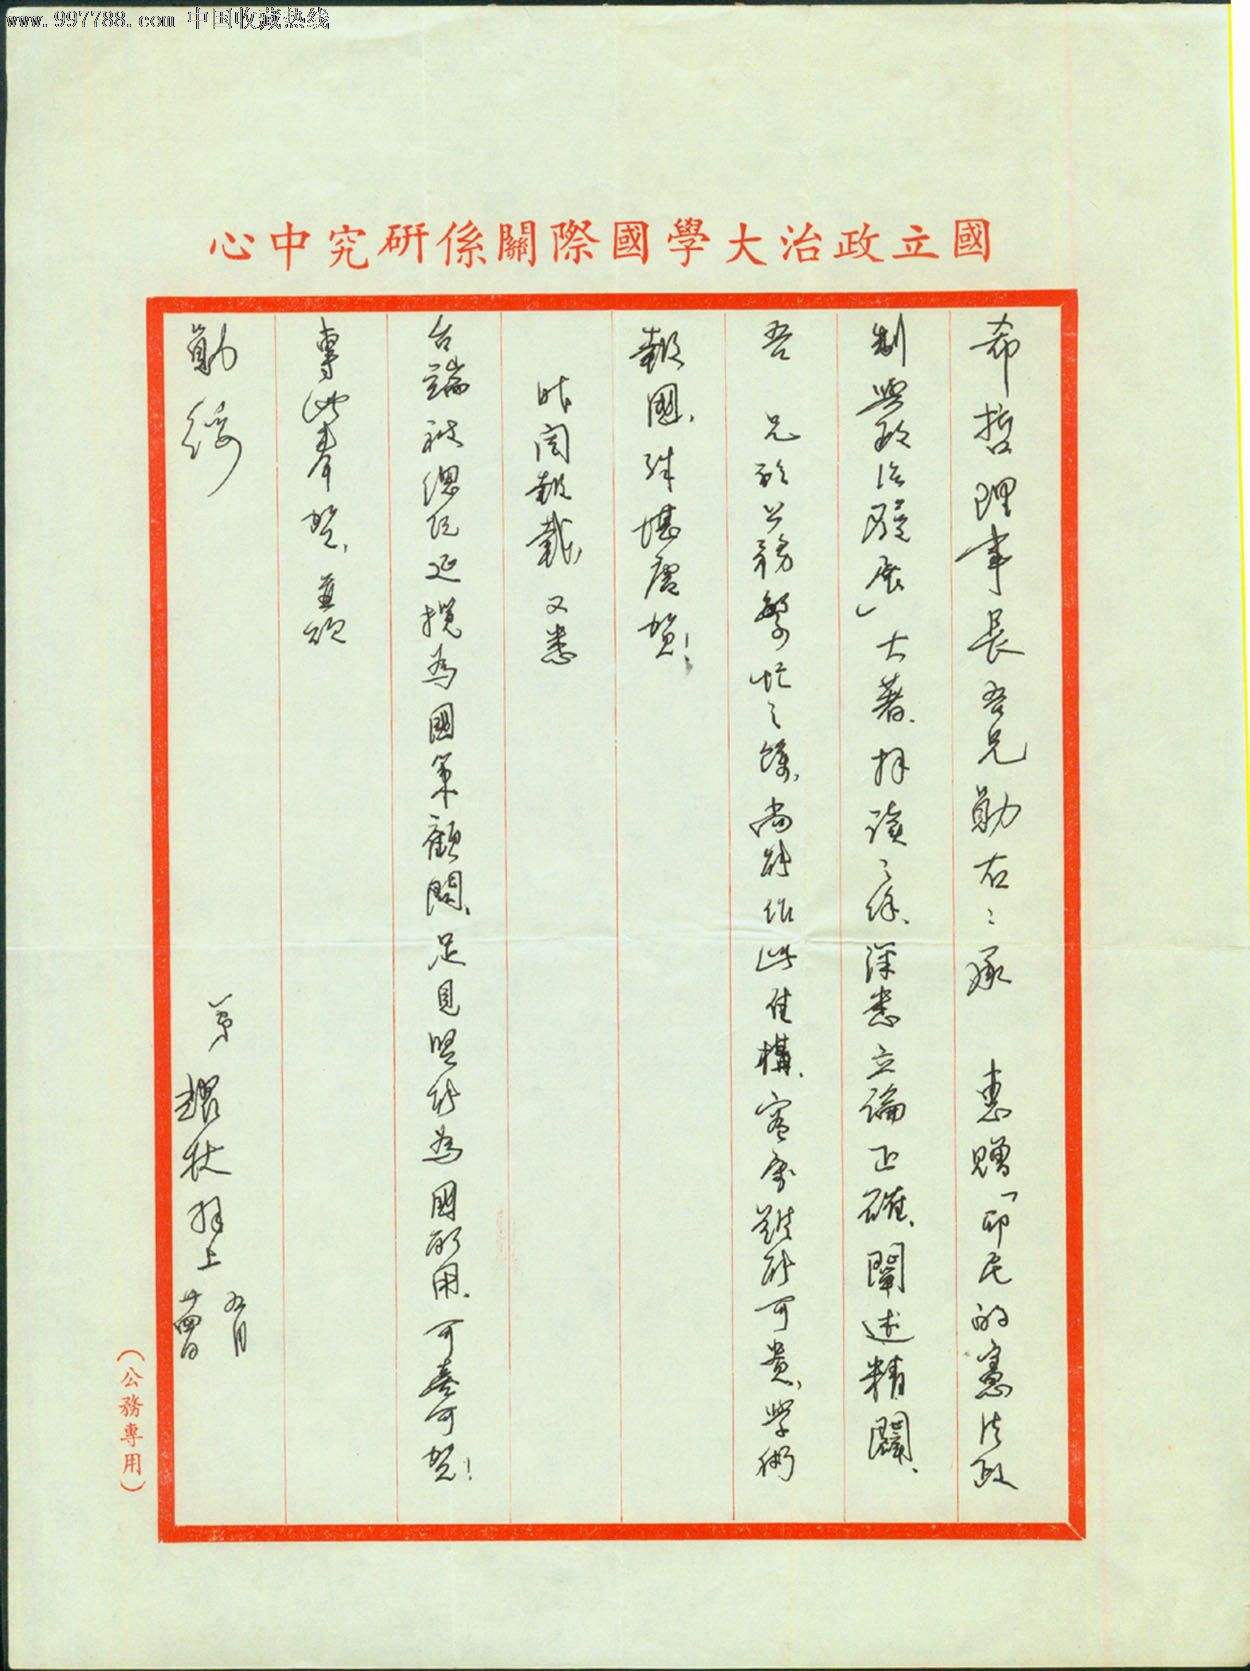 www.997788.com 中国收藏热线
國立政治大學國際關係研究中心
希哲理事長吾兄勛右：承 惠贈「印尼的憲法政
制與政治發展」大著、拜讀之餘、深悉立論正確、闡述精闢、
吾 兄於公務繁忙之餘、尚能作此佳構、實屬難能可貴、學術
報國、殊堪慶賀！
昨閱報載、又悉
台端被總統延攬為國策顧問、足見賢能為國所用、可喜可賀！
專此奉賀、並頌
勛綏
弟 拜上 五月
廿四日
（公務專用）